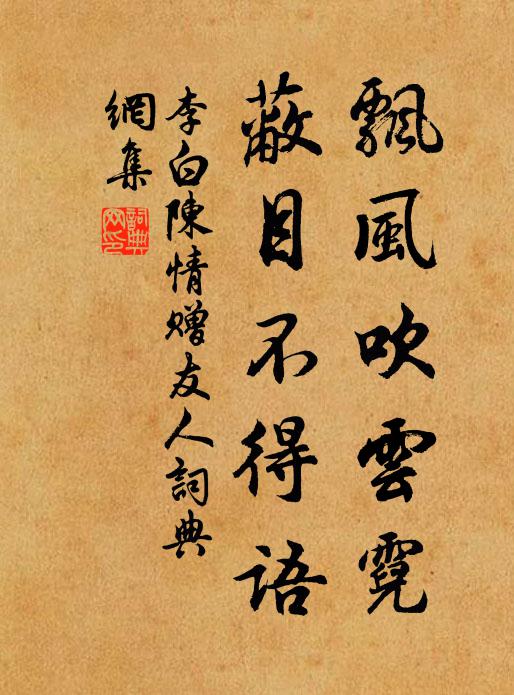 飄風吹雲霓
蔽目不得語
李白陳情贈友人詞典
網集
詞典
網印